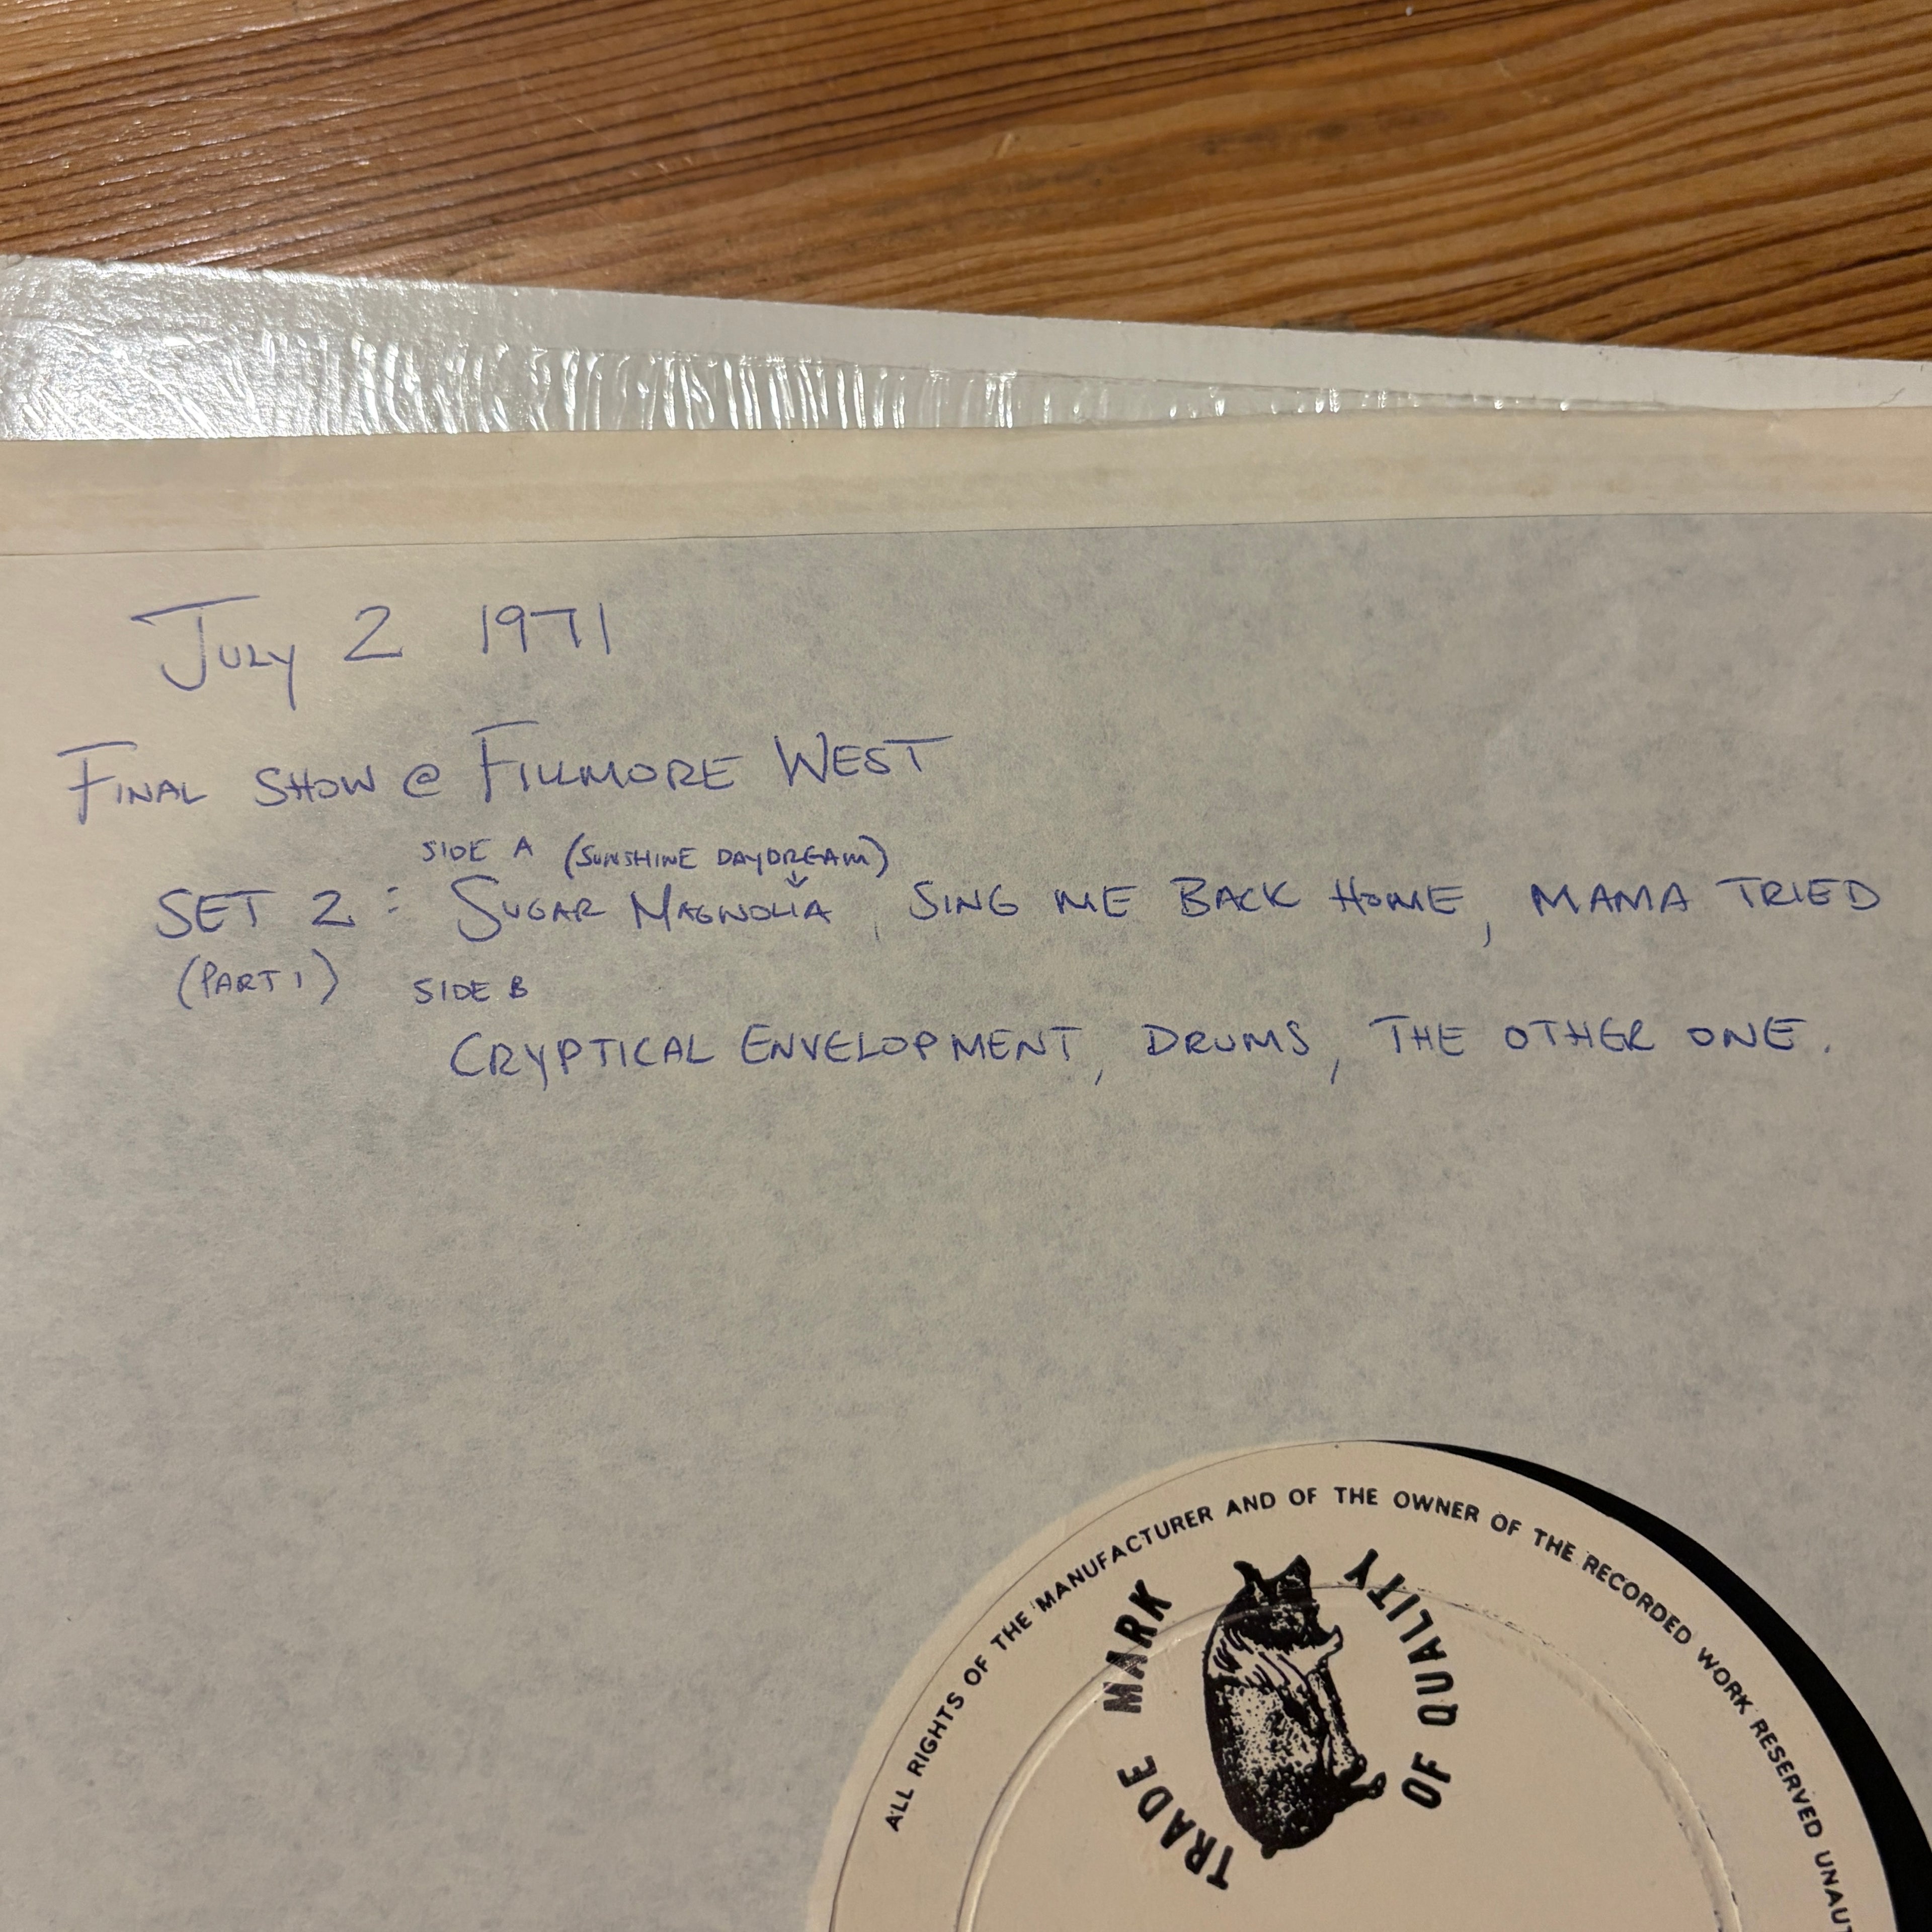 JULY 2 1971
FINAL SHOW @ FILLMORE WEST
SIDE A (SUNSHINE DAYDREAM)
SET 2 : SUGAR MAGNOLIA, SING ME BACK HOME, MAMA TRIED
(PART 1) SIDE B
CRYPTICAL ENVELOPMENT, DRUMS, THE OTHER ONE.
ALL RIGHTS OF THE MANUFACTURER AND OF THE OWNER OF THE RECORDED WORK RESERVED UNAU
TRADE MARK OF QUALITY